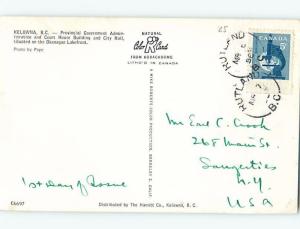 KELOWNA, B.C. — Provincial Government Admin-
istration and Court House Building and City Hall,
situated on the Okanagan Lakefront.
Photo by Pope
NATURAL
Color Rland
FROM KODACHROME
LITHO'D IN CANADA
25
RUTLAND
B.C.
5
RUTLAND
B.C.
Mr Earl C. Crook
268 Main St.
Saugerties
N.Y.
USA
1st Day of Issue
A MIKE ROBERTS COLOR PRODUCTION, BERKELEY 2, CALIF.
C6697
Distributed by The Harriti Co., Kelowna, B.C.